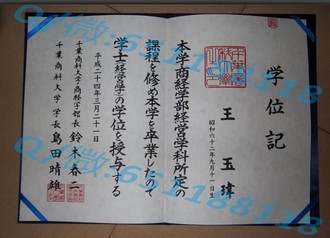 学位記
王玉瑋
昭和六十二年九月十一日生
本学商経学部経営学科所定の
課程を修め本学を卒業したので
学士(経営学)の学位を授与する
平成二十四年三月二十一日
千葉商科大学商経学部長 鈴木春二
千葉商科大学学長 島田晴雄